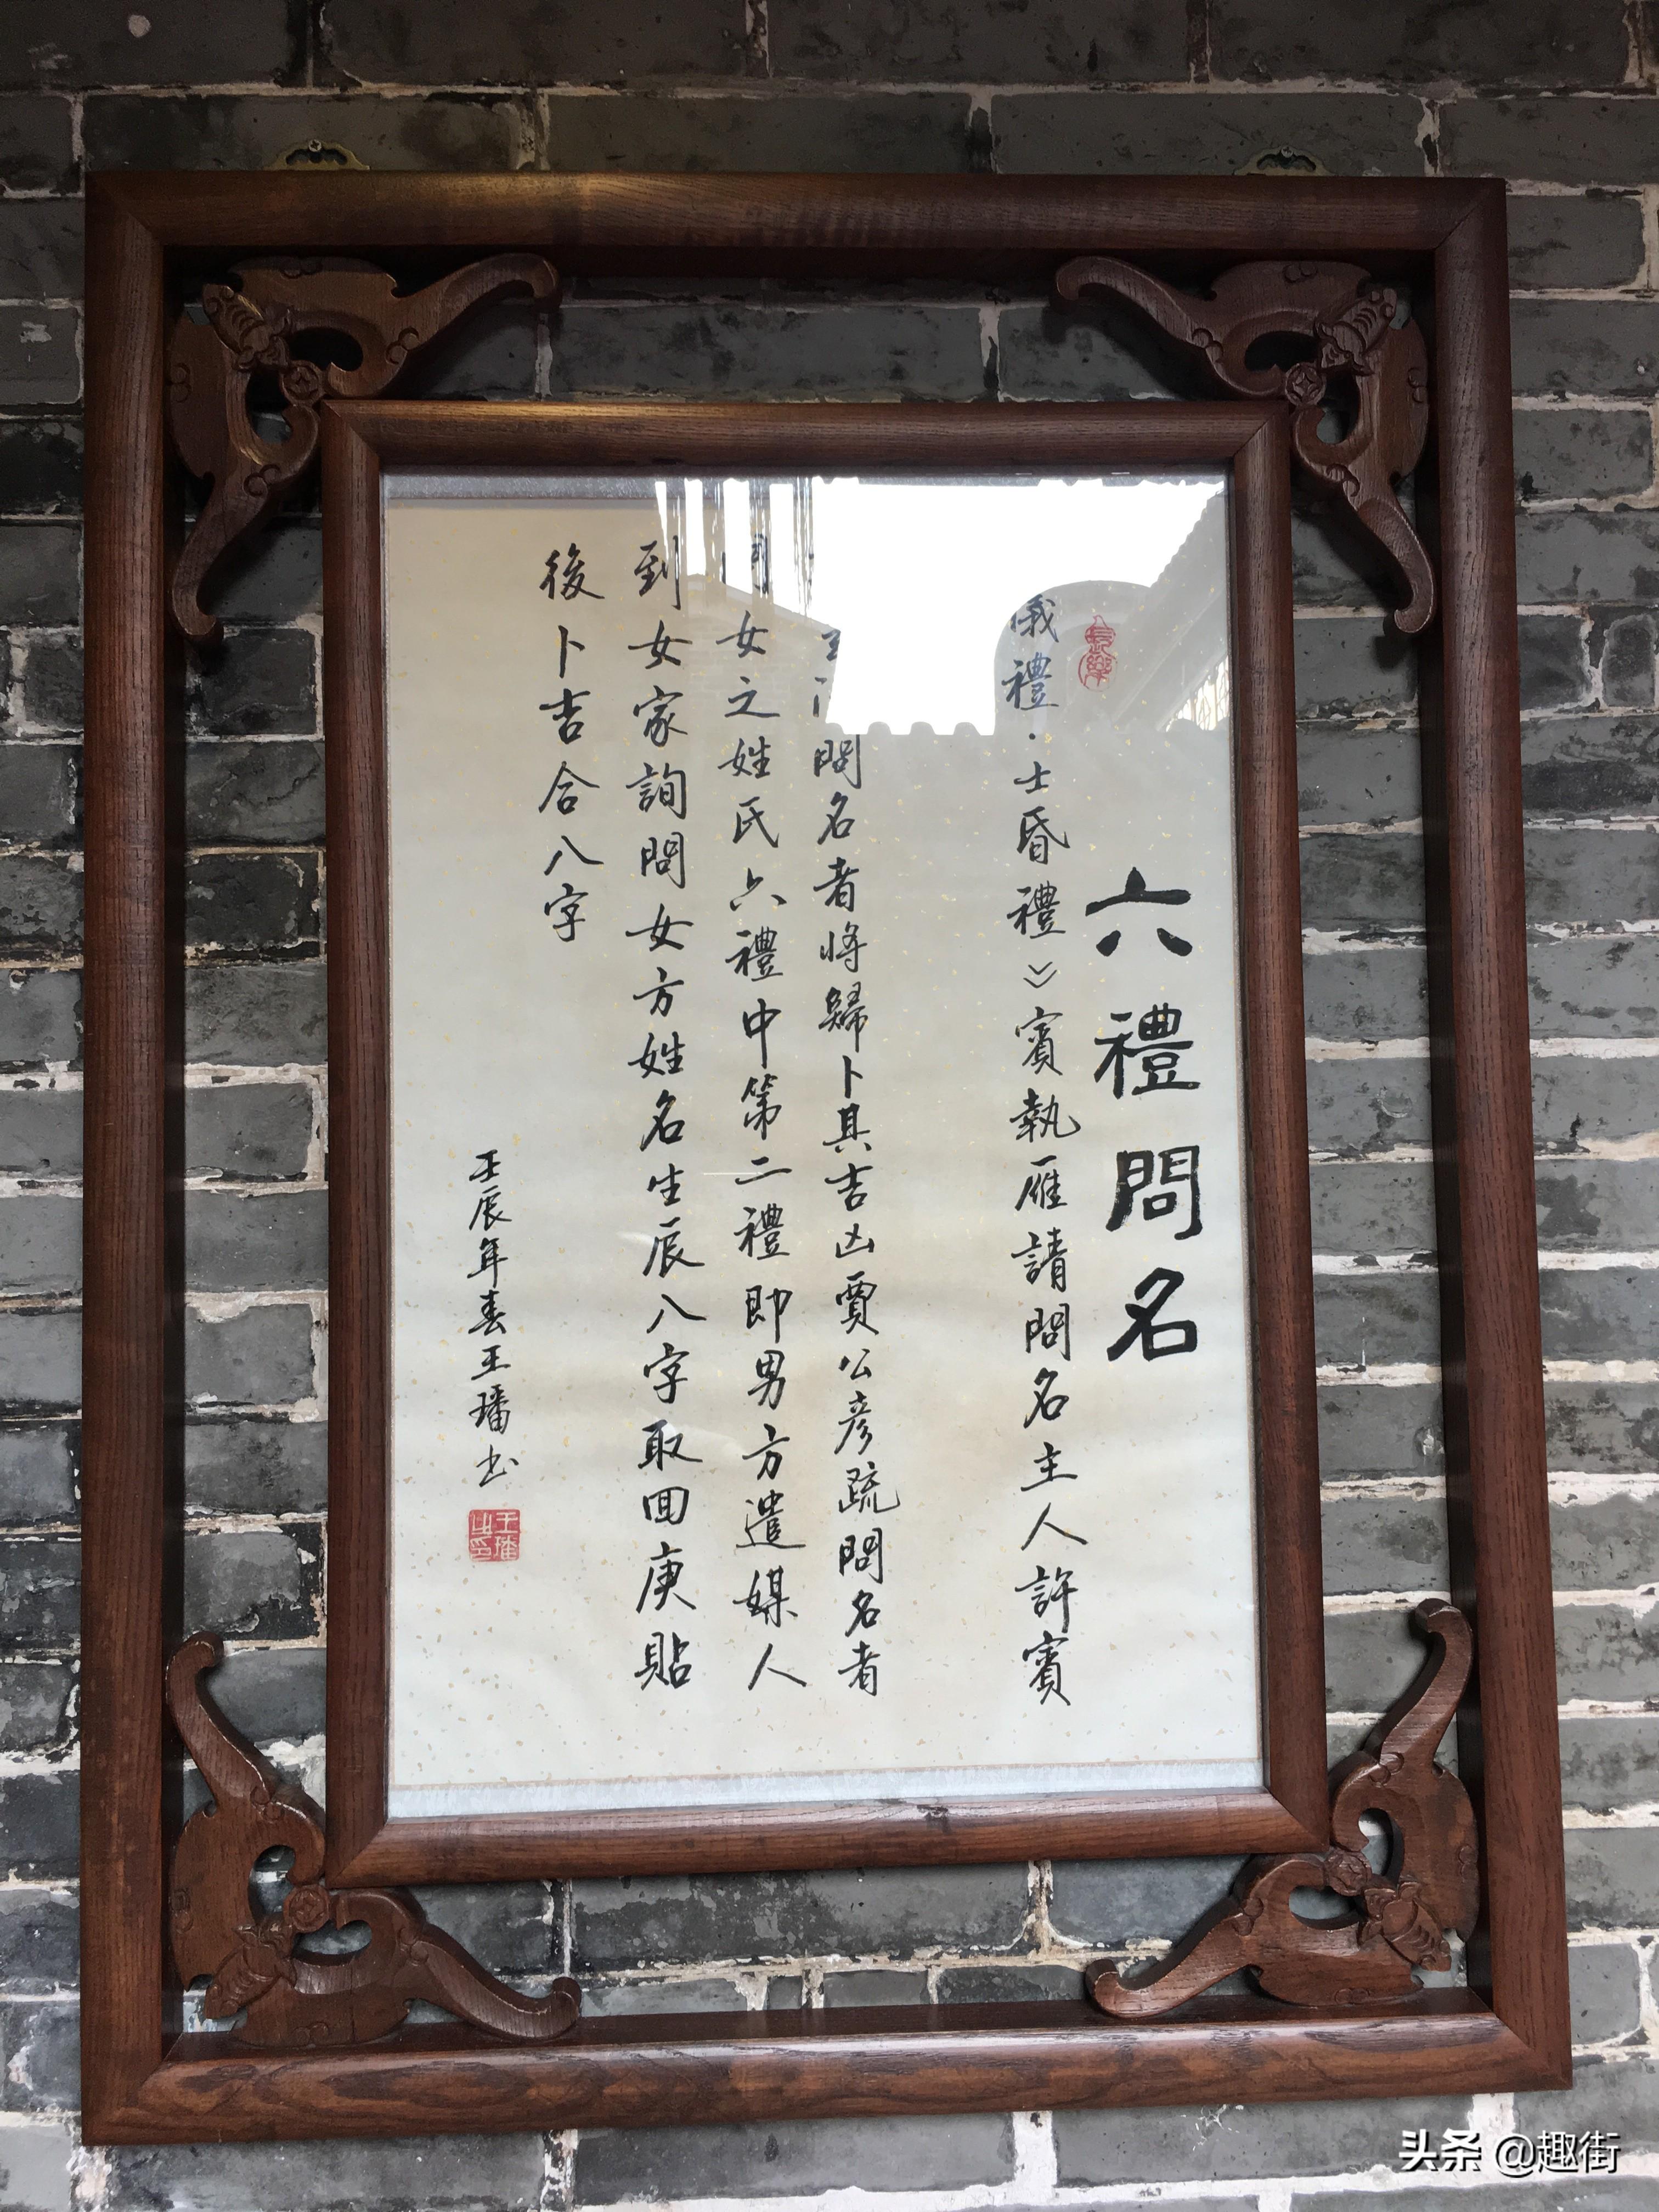 六禮問名
儀禮·士昏禮》賓執雁請問名主人許賓
問名者將歸卜其吉凶賈公彦疏問名者
問女之姓氏六禮中第二禮即男方遣媒人
到女家詢問女方姓名生辰八字取回庚貼
後卜吉合八字
壬辰年春王璠书
頭条 @趣街